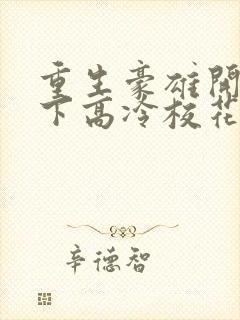 重生豪雄開
下高冷校花
辛德智